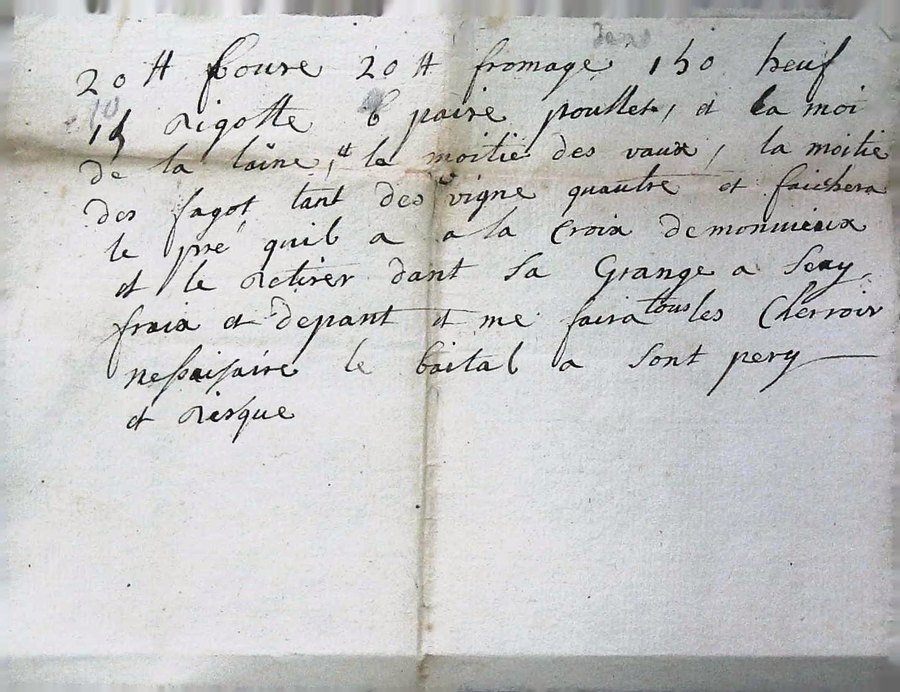 20 ₶ beure 20 ₶ fromage 150 heuf
15 rigotte 6 paire poullet, et la moi
de la laine, et la moitie des vaux, la moitie
des fagot tant des vigne quautre et faichera
le pré quil a a la Croix de monvieux
et le retirer dant sa Grange a sery
fraix et depant et me faira tous les Cherroir
nessaisaire le baital a sont pery
et risque